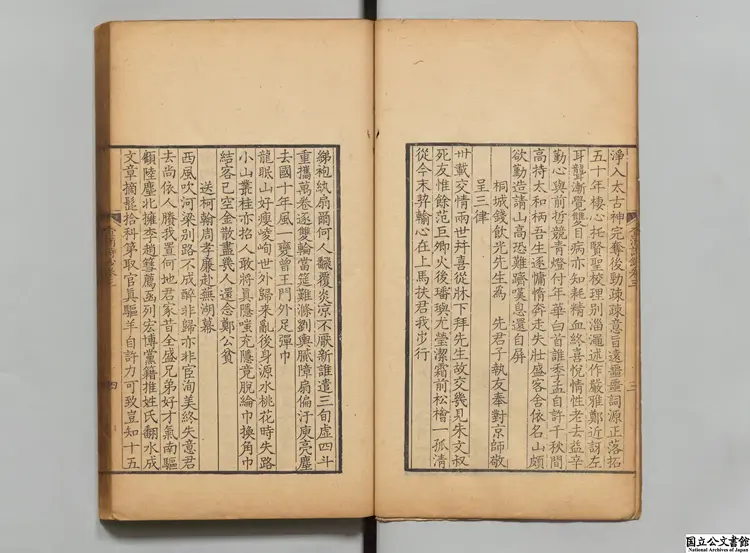 淨入太古神完奪後勁疎疎意旨遠醰醰詞源正落拓
五十年棲心托賢聖校理别淄澠述作嚴雅鄭近訝左
耳聾漸覺雙目病亦知耗精血終喜悅情性老去益辛
勤心與前哲競青燈付年華白首誰季孟自許千秋間
高持太和柄吾生逐慵惰奔走失壯盛客舍依名山頗
欲勤造請山高恐難躋嘆息還自屏
桐城錢飲光先生為 先君子執友奉對京師敬
呈三律
卅載交情兩世幷喜從牀下拜先生故交幾見朱文叔
死友惟餘范巨卿火後璠璵尤瑩潔霜前松檜一孤清
從今末筓輸心在上馬扶君我步行
三
綈袍紈扇爾何人飜覆炎涼不厭新誰遣三旬虛四斗
重攜萬卷逐雙輪當筵難滌劉輿膩障扇偏汙庾亮塵
去國十年風一變曾王門外足彈巾
龍眠山好瘦崚峋世外歸來亂後身源水桃花時失路
小山叢桂亦招人敢將真隱嗤充隱竟脫綸巾換角巾
結客已空金散盡幾人還念鄭公貧
送柯翰周孝廉赴蕪湖幕
西風吹河梁別路不成醉非歸亦非宦洵美終失意君
去尚依人賸我置何地君家昔全盛兄弟好才氣南驅
顧陸塵北擁李趙篲薦函列宏博黨籍推姓氏翻水成
文章摘髭拾科第取官真驅羊自許力可致豈知十五
四
国立公文書館
National Archives of Japan